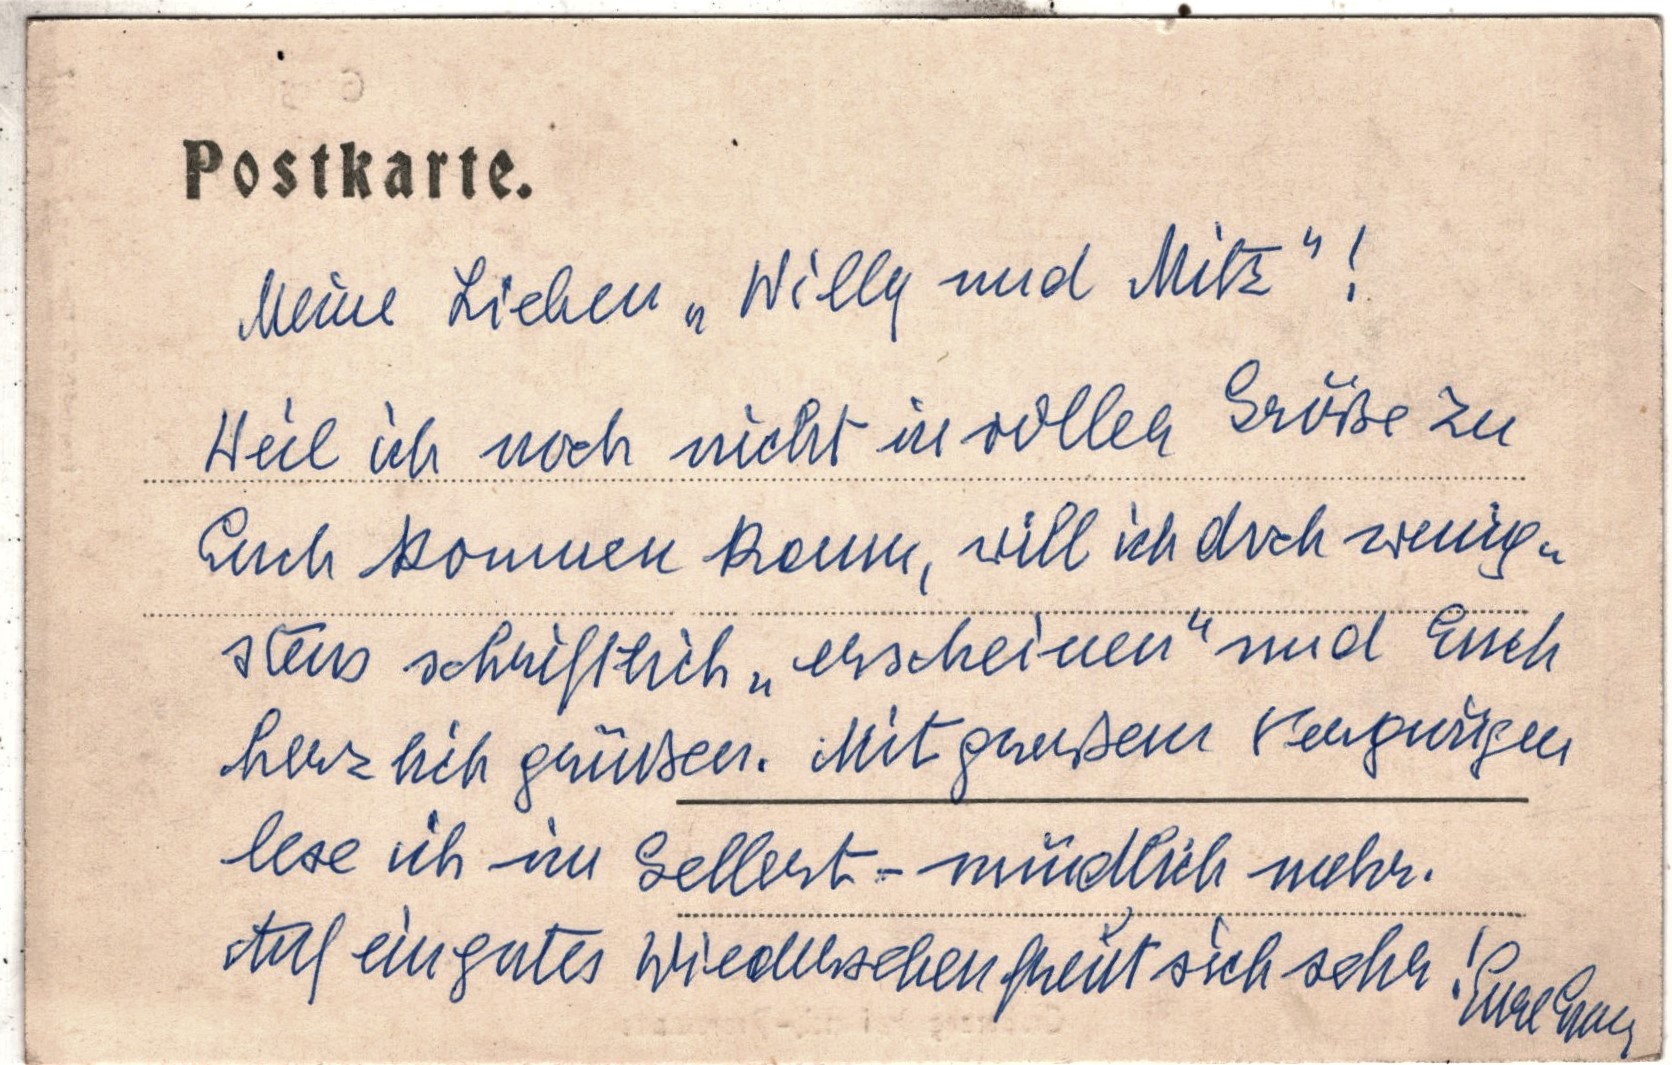 Postkarte.
Meine Lieben „Willy und Mitz"!
Weil ich noch nicht in voller Größe zu
Euch kommen kann, will ich doch wenig„
stens schriftlich „erscheinen" und Euch
herzlich grüßen. Mit großem Vergnügen
lese ich im Gellert - mündlich mehr.
Auf ein gutes Wiedersehen freut sich sehr!
Eure